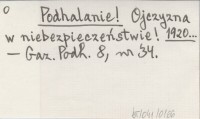 O
Podhalanie! Ojczyzna
w niebezpieczeństwie! 1920...
— Gaz. Podh. 8, nr 34.